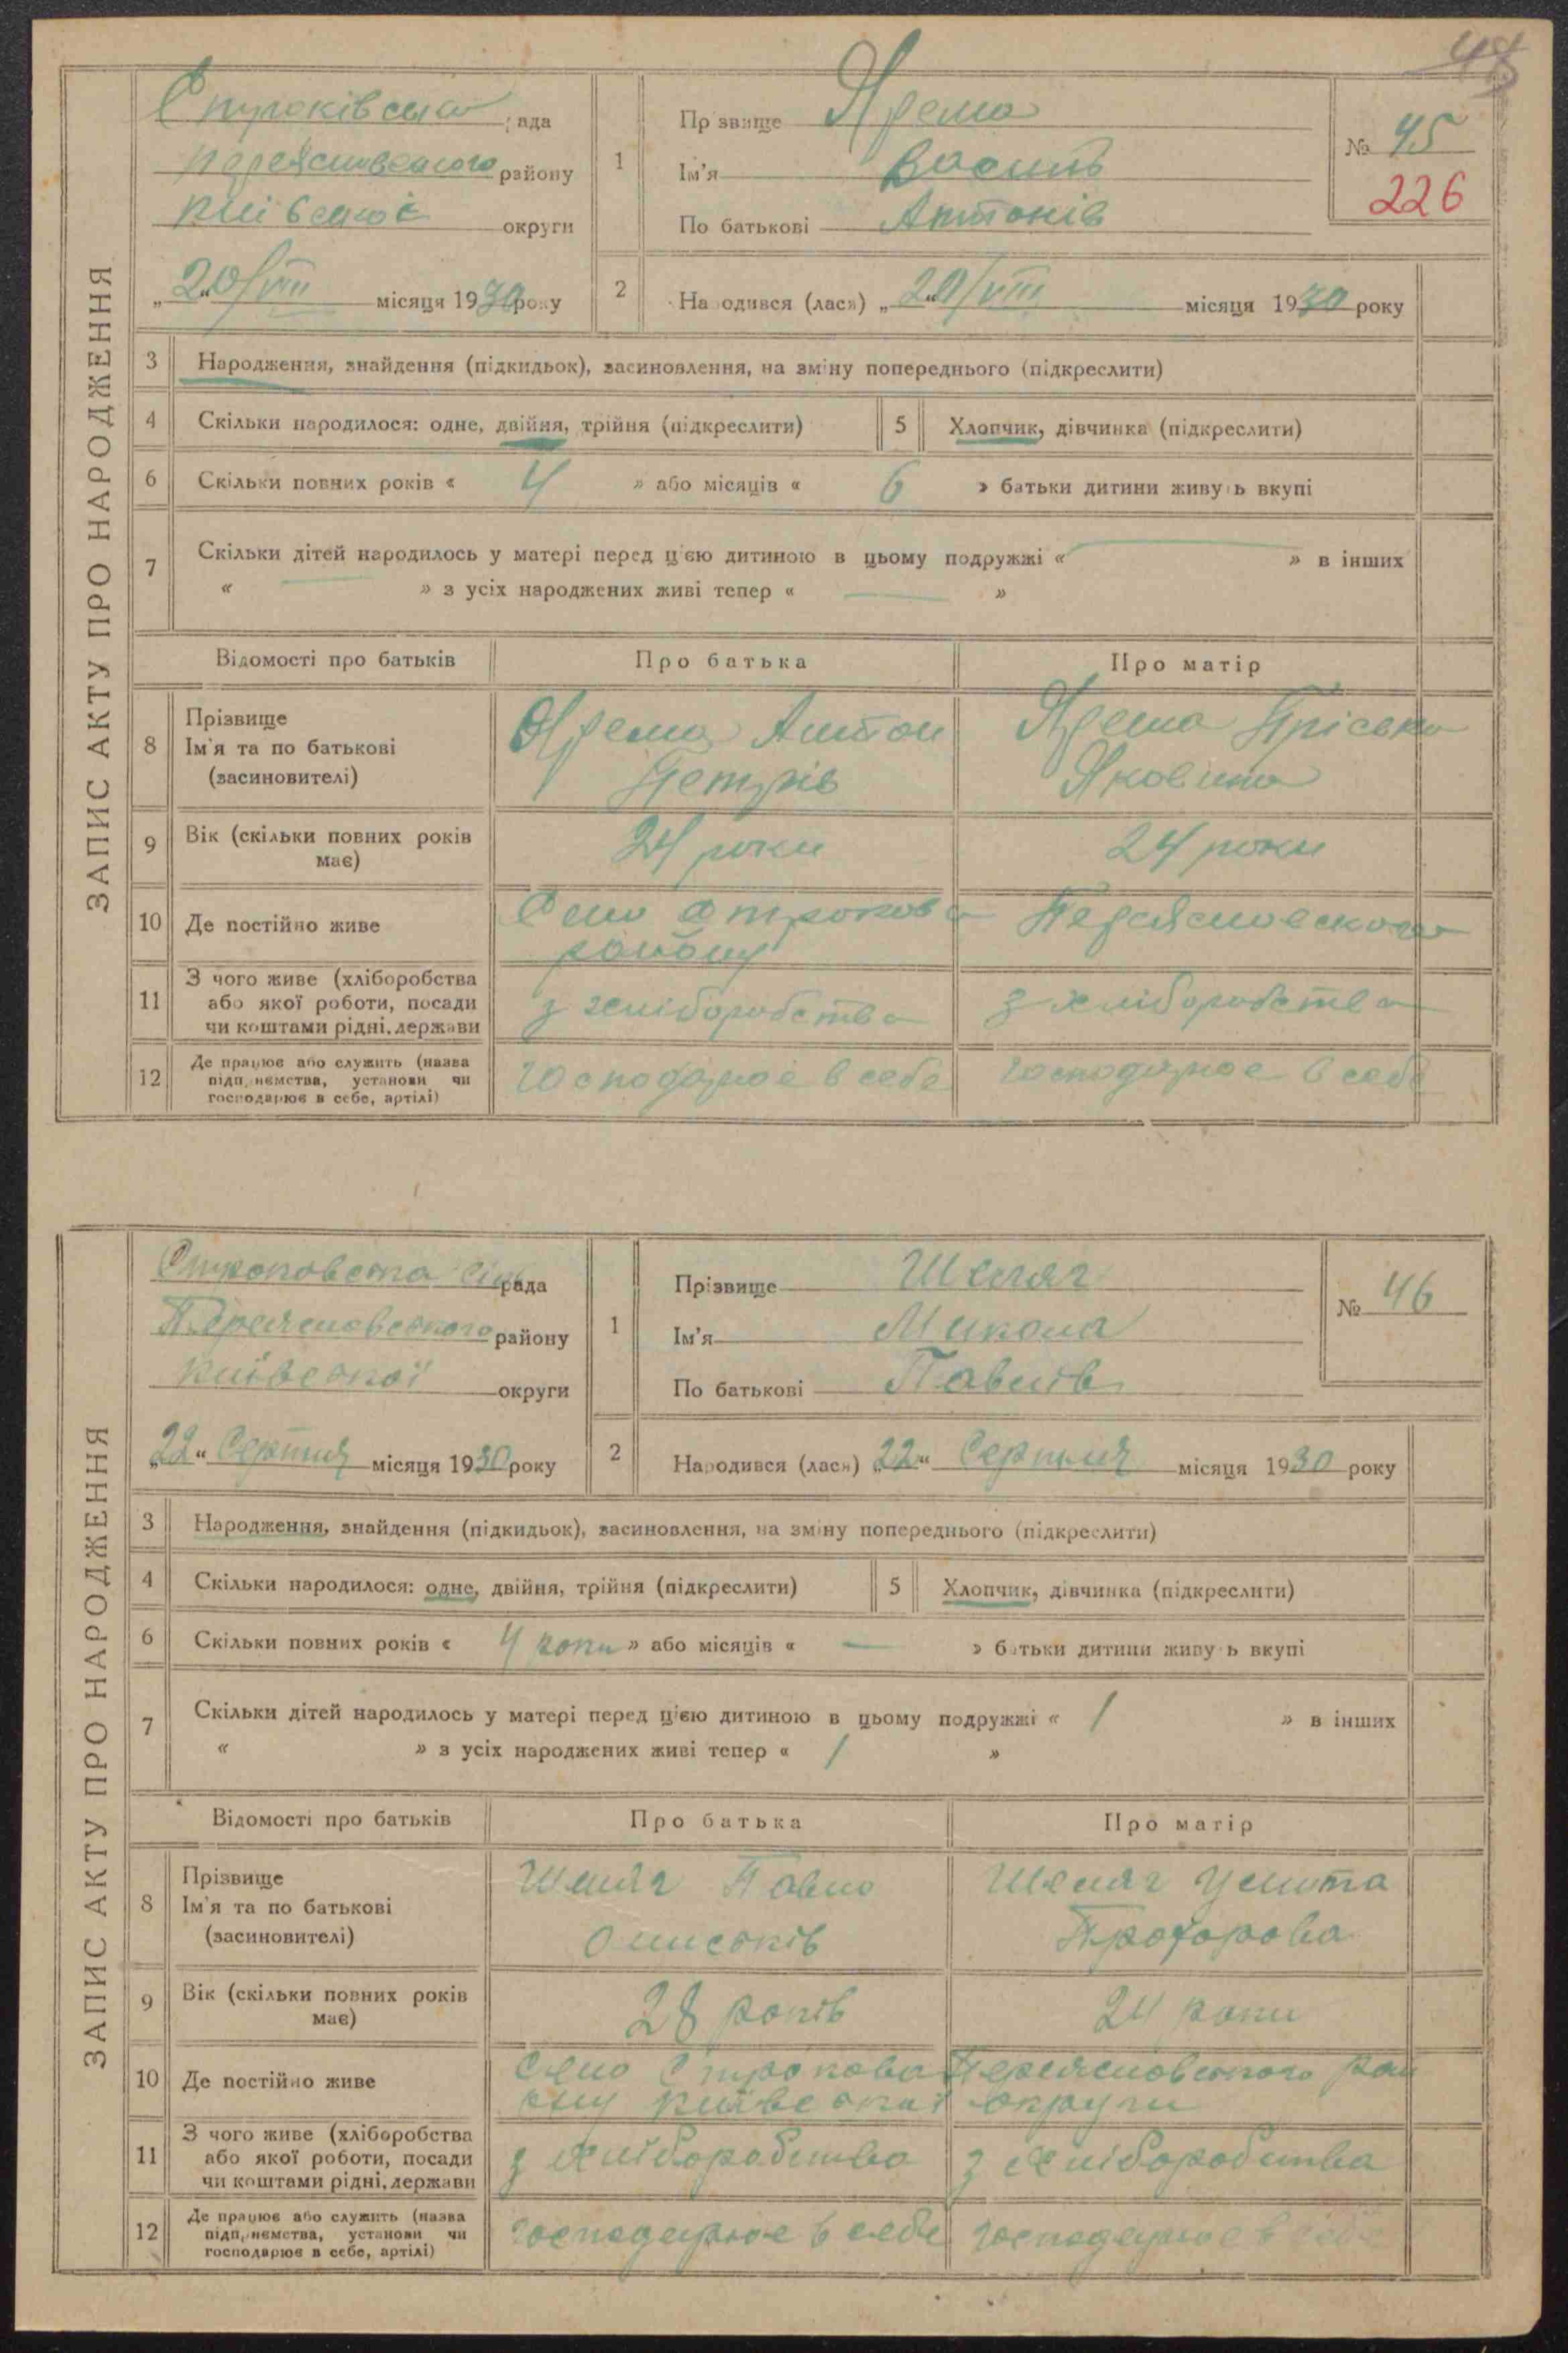 48
ЗАПИС АКТУ ПРО НАРОДЖЕННЯ
Строківська рада
Переяславського району
Київської округи
„20/VIII“ місяця 1930 року
1 Прізвище Ярема
Ім'я Василь
По батькові Антонів
№ 45
226
2 Народився (лася) „20/VIII“ місяця 1930 року
3 Народження, знайдення (підкидьок), засиновлення, на зміну попереднього (підкреслити)
4 Скільки народилося: одне, двійня, трійня (підкреслити) 5 Хлопчик, дівчинка (підкреслити)
6 Скільки повних років « 4 » або місяців « 6 » батьки дитини живуть вкупі
7 Скільки дітей народилось у матері перед цією дитиною в цьому подружжі « — » в інших
« — » з усіх народжених живі тепер « — »
Відомості про батьків Про батька Про матір
8 Прізвище
Ім'я та по батькові
(засиновителі)
Ярема Антон
Петрів
Ярема Пріська
Яковівна
9 Вік (скільки повних років
має)
24 роки 24 роки
10 Де постійно живе
Село Строкова Переяславского
району
11 З чого живе (хліборобства
або якої роботи, посади
чи коштами рідні, держави
з хліборобства з хліборобства
12 Де працює або служить (назва
підприємства, установи чи
господарює в себе, артілі)
господарює в себе господарює в себе
ЗАПИС АКТУ ПРО НАРОДЖЕННЯ
Строковська сільрада
Переяславського району
Київської округи
„22“ Серпня місяця 1930 року
1 Прізвище Шеляг
Ім'я Микола
По батькові Павлів
№ 46
2 Народився (лася) „22“ Серпня місяця 1930 року
3 Народження, знайдення (підкидьок), засиновлення, на зміну попереднього (підкреслити)
4 Скільки народилося: одне, двійня, трійня (підкреслити) 5 Хлопчик, дівчинка (підкреслити)
6 Скільки повних років « 4 роки » або місяців « — » батьки дитини живуть вкупі
7 Скільки дітей народилось у матері перед цією дитиною в цьому подружжі « 1 » в інших
« » з усіх народжених живі тепер « 1 »
Відомості про батьків Про батька Про матір
8 Прізвище
Ім'я та по батькові
(засиновителі)
Шеляг Павло
Шеляг Улита
Прохорова
9 Вік (скільки повних років
має)
28 років 24 роки
10 Де постійно живе
Село Строкова Переяславського рай
ону Київської округи
11 З чого живе (хліборобства
або якої роботи, посади
чи коштами рідні, держави
з хліборобства з хліборобства
12 Де працює або служить (назва
підприємства, установи чи
господарює в себе, артілі)
господарює в себе господарює в себе